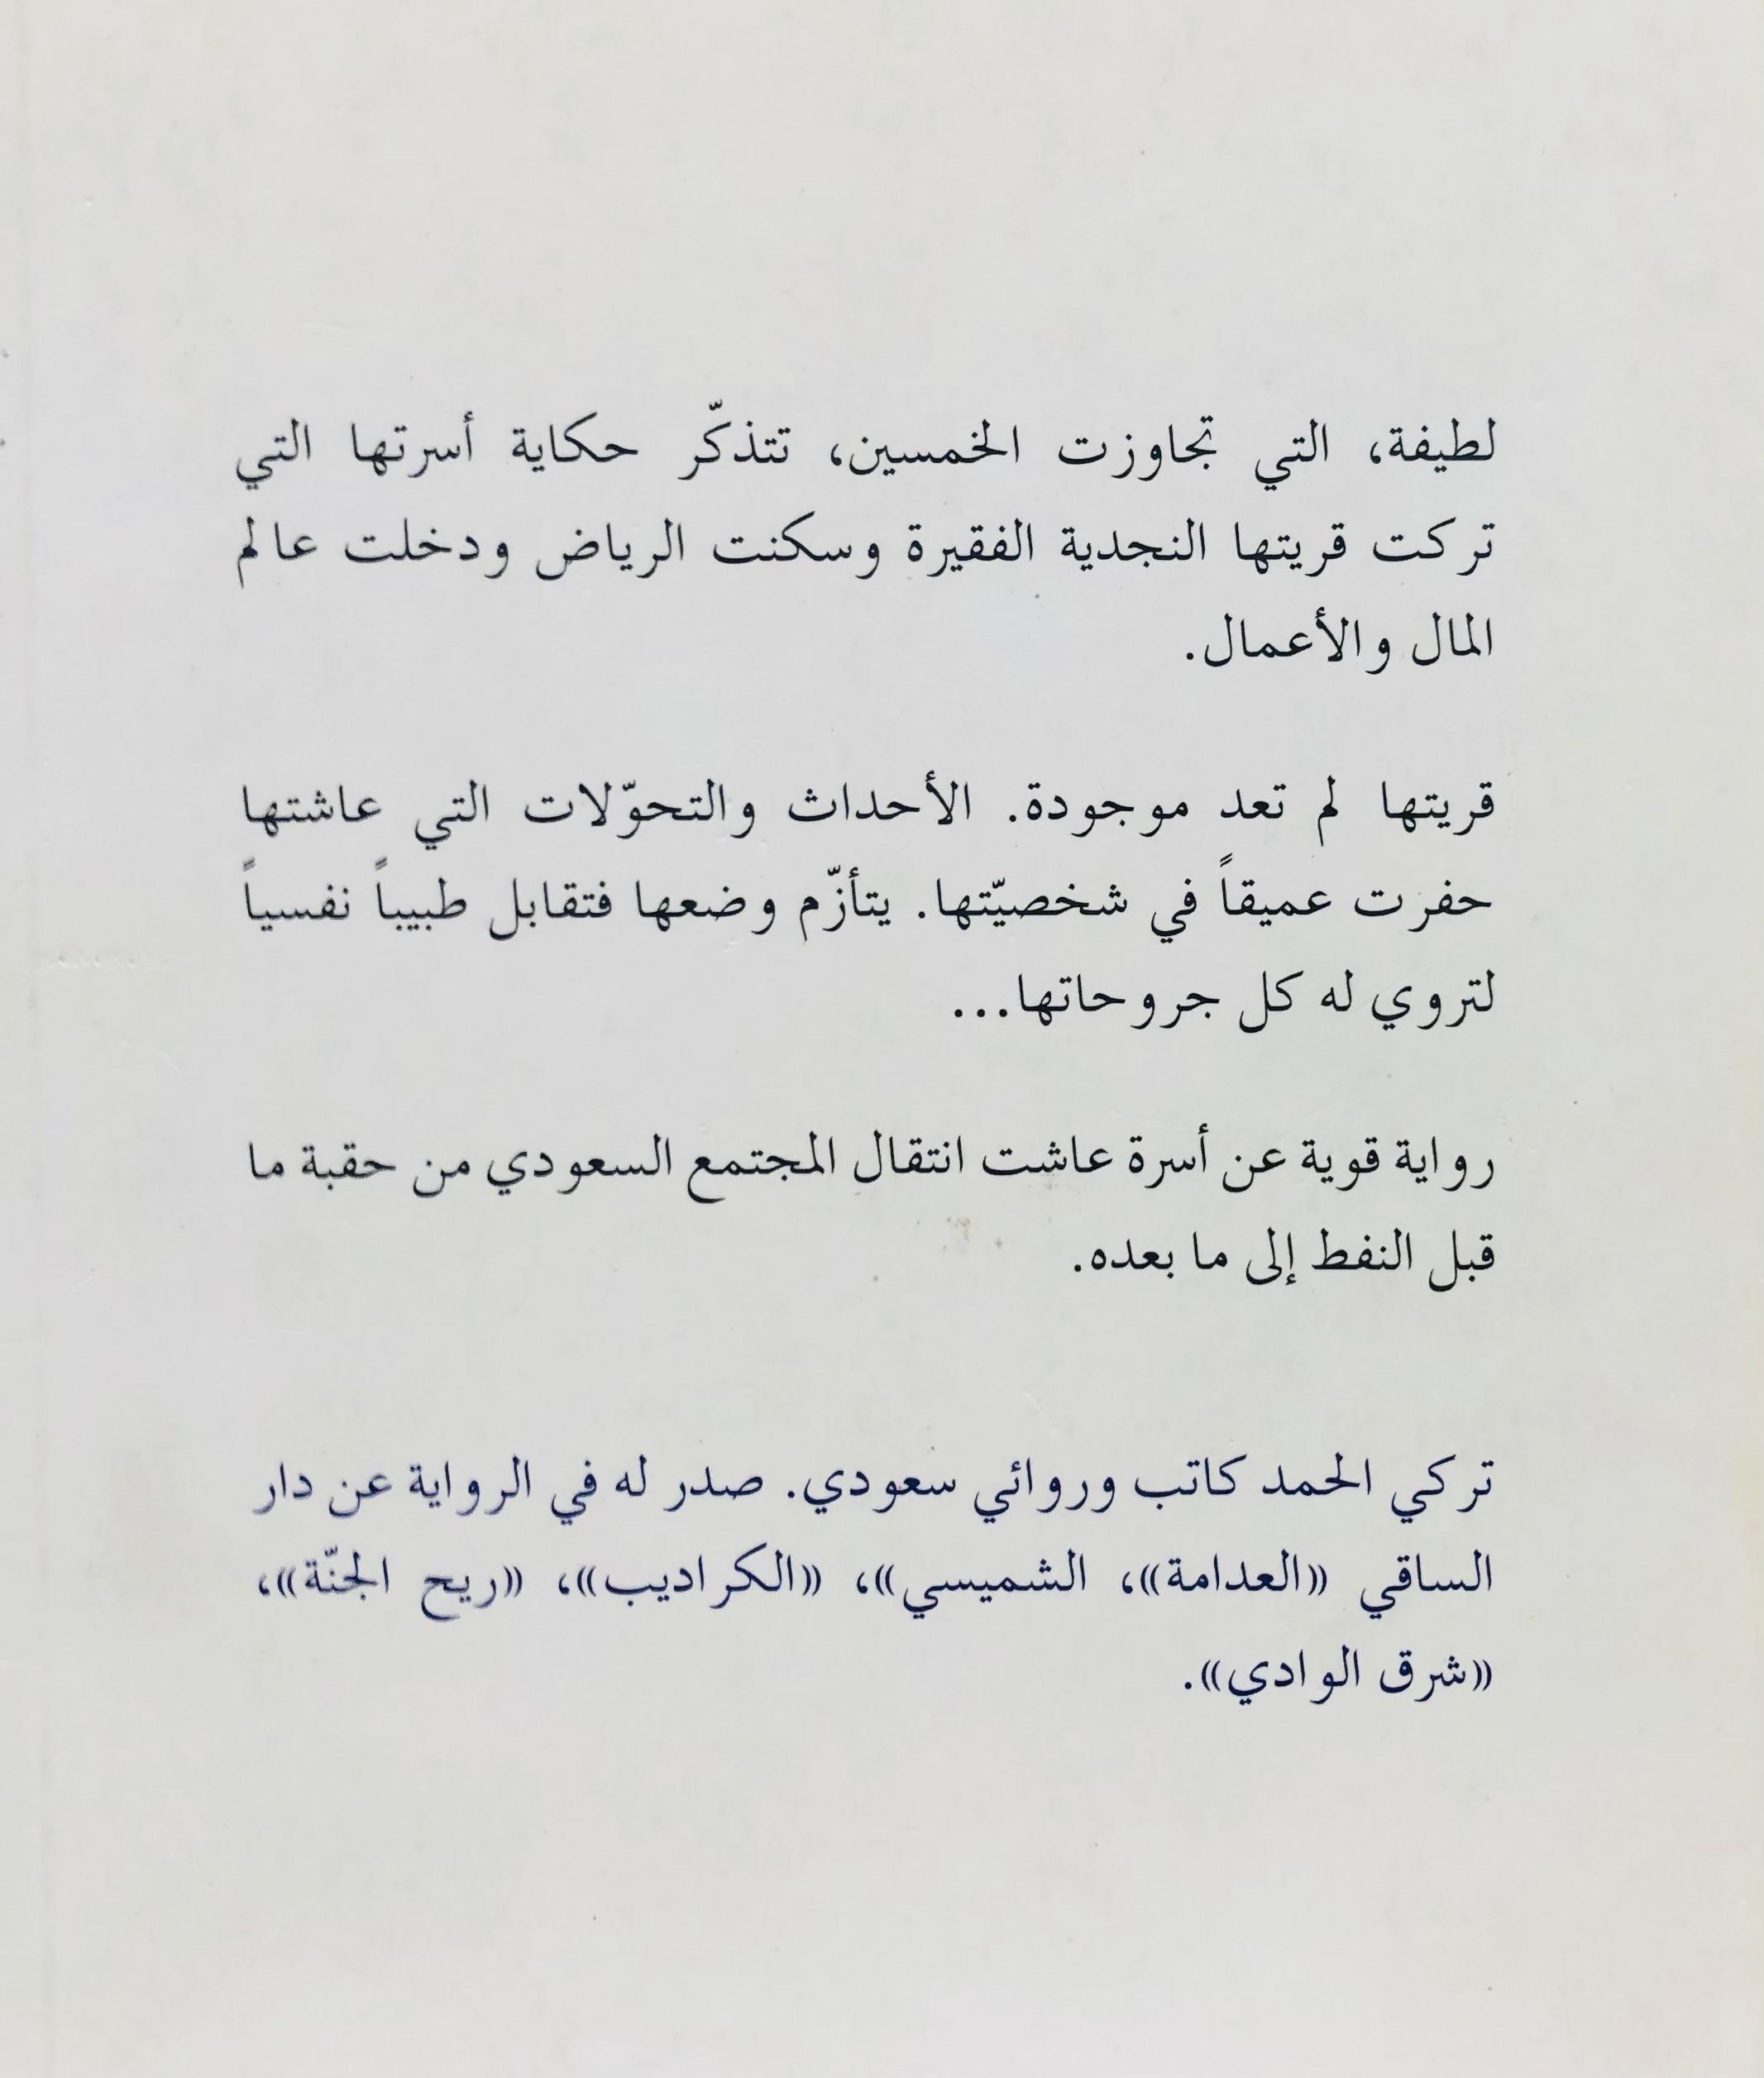 لطيفة، التي تجاوزت الخمسين، تتذكّر حكاية أسرتها التي
تركت قريتها النجدية الفقيرة وسكنت الرياض ودخلت عالم
المال والأعمال.
قريتها لم تعد موجودة. الأحداث والتحوّلات التي عاشتها
حفرت عميقاً في شخصيّتها. يتأزّم وضعها فتقابل طبيباً نفسياً
لتروي له كل جروحاتها...
رواية قوية عن أسرة عاشت انتقال المجتمع السعودي من حقبة ما
قبل النفط إلى ما بعده.
تركي الحمد كاتب وروائي سعودي. صدر له في الرواية عن دار
الساقي «العدامة»، الشميسي»، «الكراديب»، «ريح الجنّة»،
«شرق الوادي».